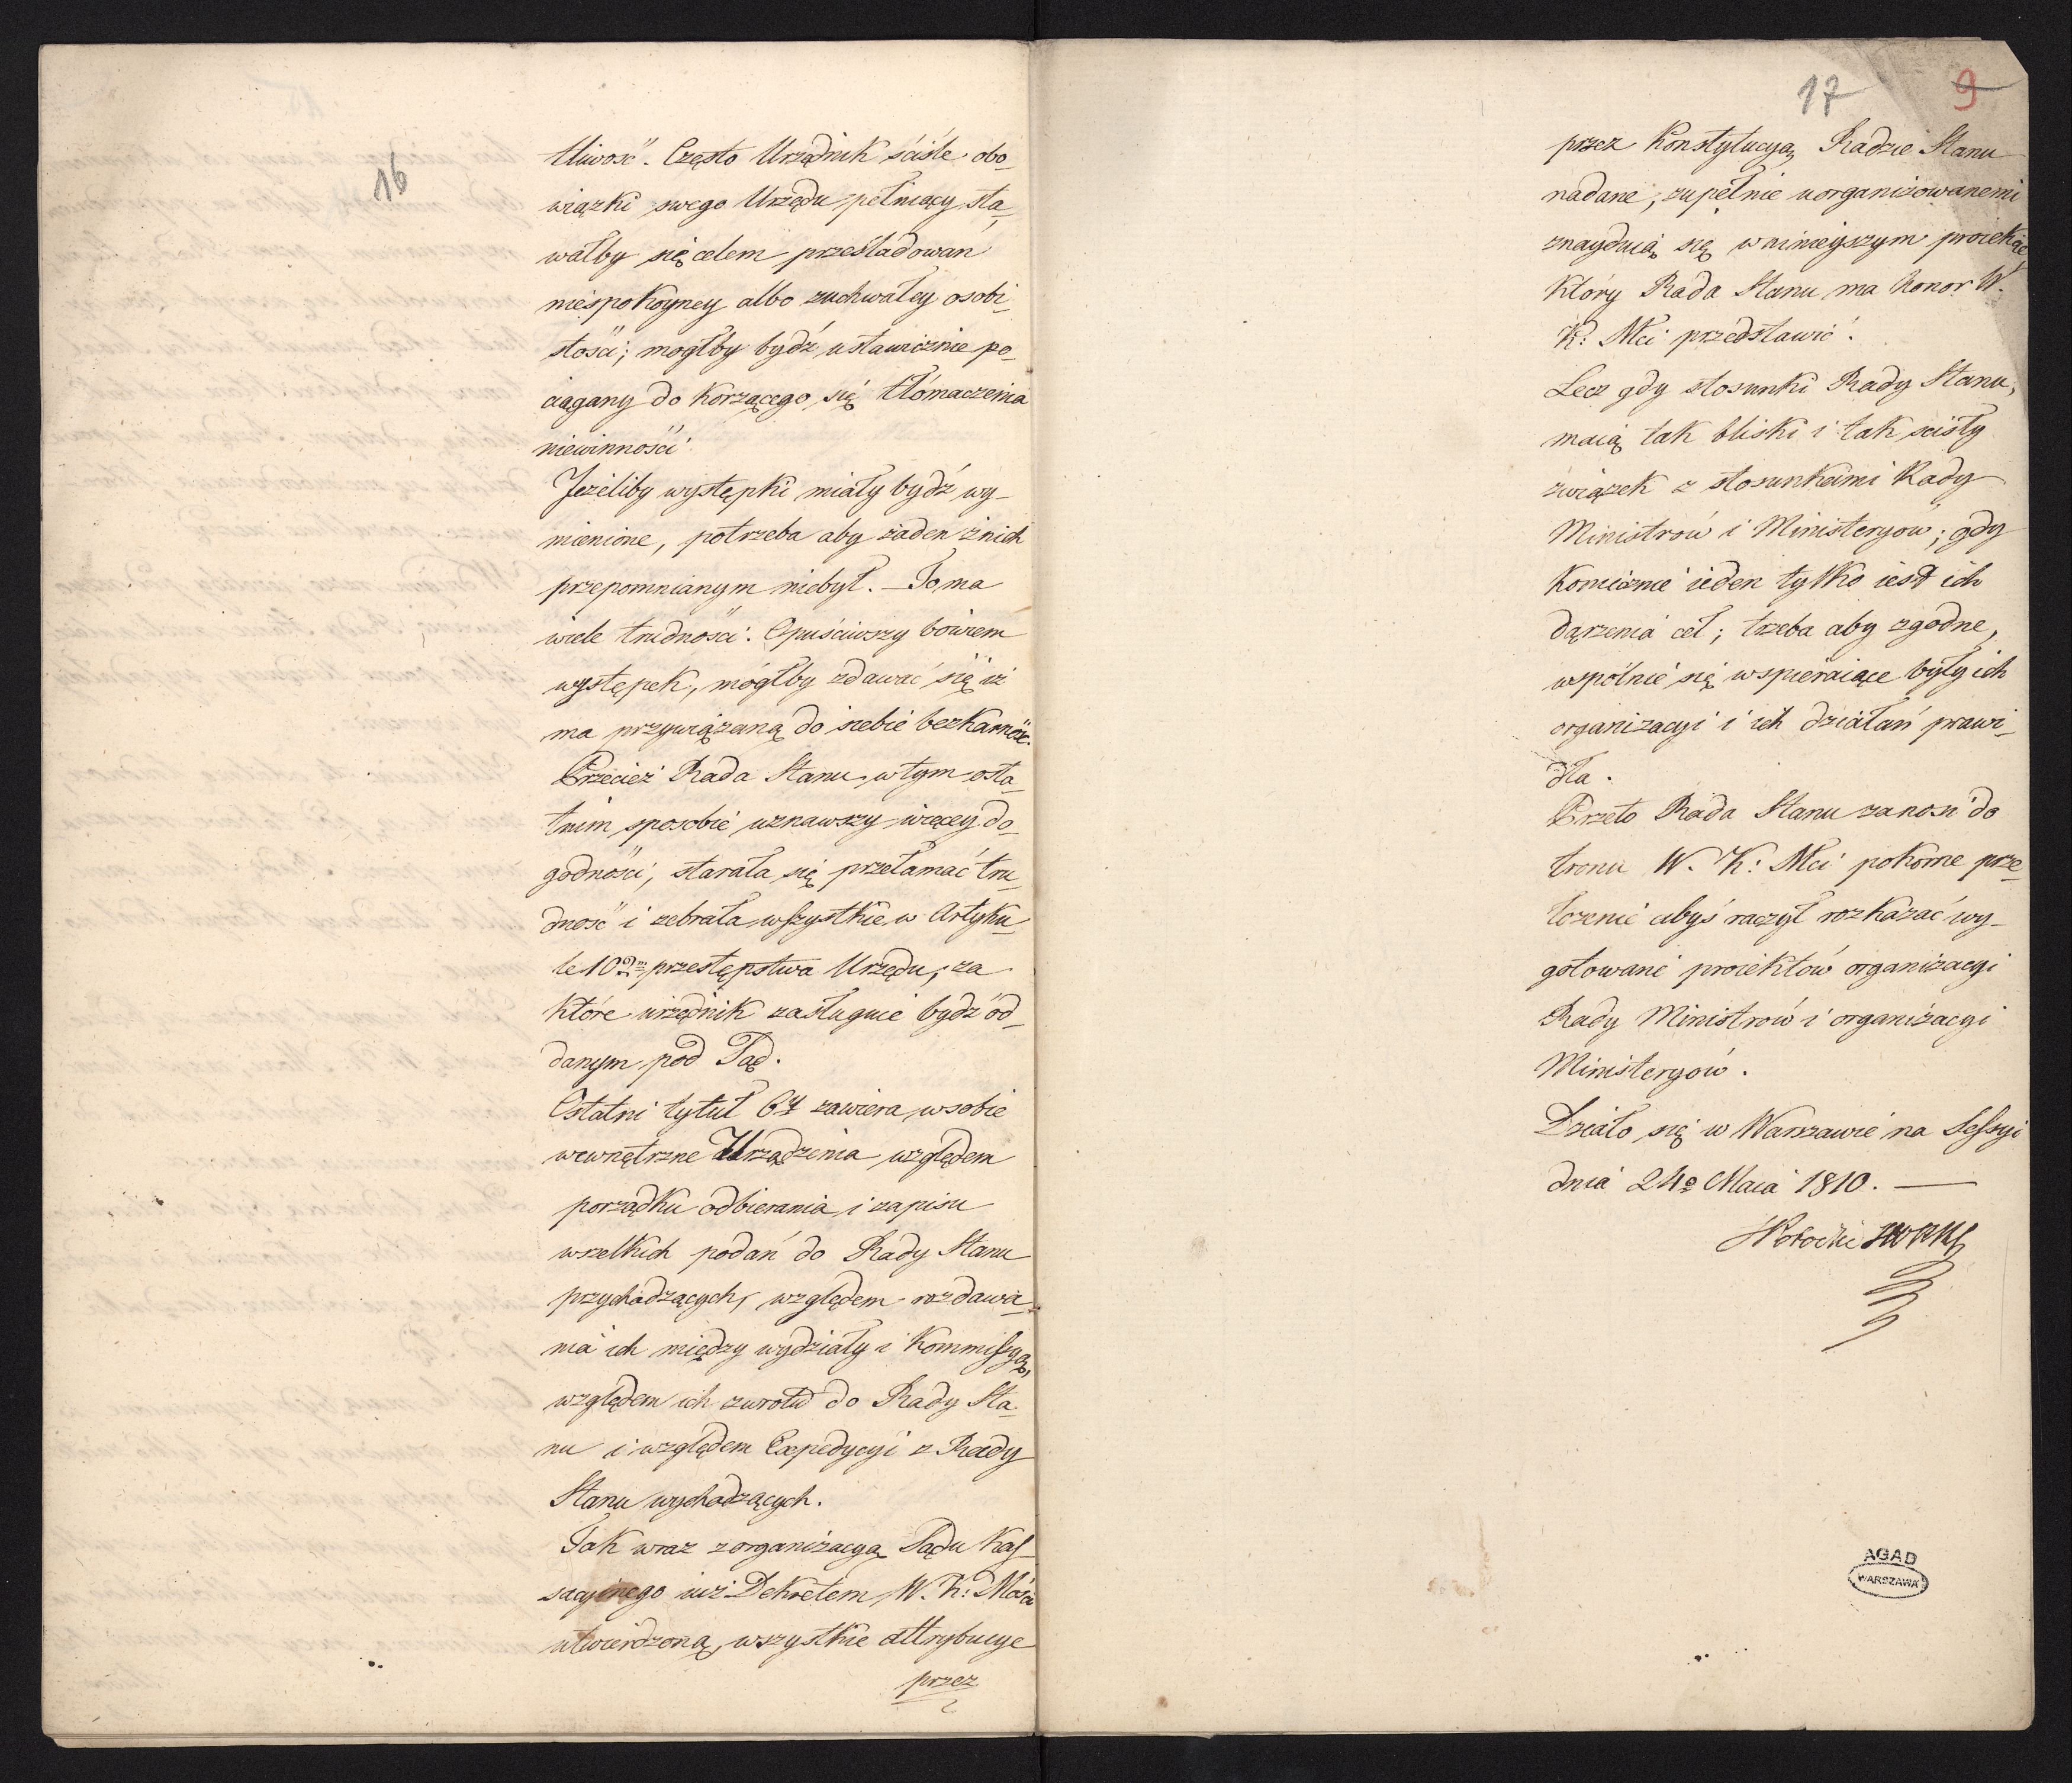 16
tliwość. Często Urzędnik ściśle obo-
wiązki swego Urzędu pełniący sta-
wałby się celem prześladowań
niespokoyney albo zuchwałey osobi-
stości; mogłby bydź ustawicznie po-
ciągany do korzącego się tłómaczenia
niewinności.
Jeżeliby występki miały bydź wy-
mienione, potrzeba aby żaden z nich
przepomnianym niebył. – To ma
wiele trudności. Opuściwszy bowiem
występek, mógłby zdawać się iż
ma przywiązaną do siebie bezkarność.
Przecież Rada Stanu w tym osta-
tnim sposobie uznawszy więcey do-
godności, starała się przełamać tru-
dność i zebrała wszystkie w Artyku-
le 102m przestępstwa Urzędu, za
które urzędnik zasługuie bydź od-
danym pod Sąd.
Ostatni tytuł 6y zawiera w sobie
wewnętrzne Urządzenia względem
porządku odbierania i zapisu
wszelkich podań do Rady Stanu
przychodzących, względem rozdawa-
nia ich między wydziały i Kommissyą,
względem ich zwrotu do Rady Sta-
nu i względem Expedycyi z Rady
Stanu wychodzących.
Tak wraz z organizacyą Sądu Kas-
sacyinego iuż Dekretem W. K: Mości
utwierdzoną, wszystkie attrybucye
przez
17 9
przez Konstytucyą Radzie Stanu
nadane, zupełnie uorganizowanemi
znayduią się w ninieyszym proiekcie
który Rada Stanu ma honor W.
K: Mci przedstawić.
Lecz gdy stosunki Rady Stanu,
maią tak bliski i tak scisły
związek z stosunkami Rady
Ministrów i Ministeryów; gdy
koniecznie ieden tylko iest ich
dążenia cel; trzeba aby zgodne,
wspólnie się wspieraiące były ich
organizacyi i ich działań prawi-
dła.
Przeto Rada Stanu zanosi do
tronu W. K: Mci pokorne prze-
łożenie abyś raczył rozkazać wy-
gotowanie proiektów organizacyi
Rady Ministrów i organizacyi
Ministeryów.
Działo się w Warszawie na Sessyi
dnia 24o Maia 1810. —
Potocki
AGAD
WARSZAWA